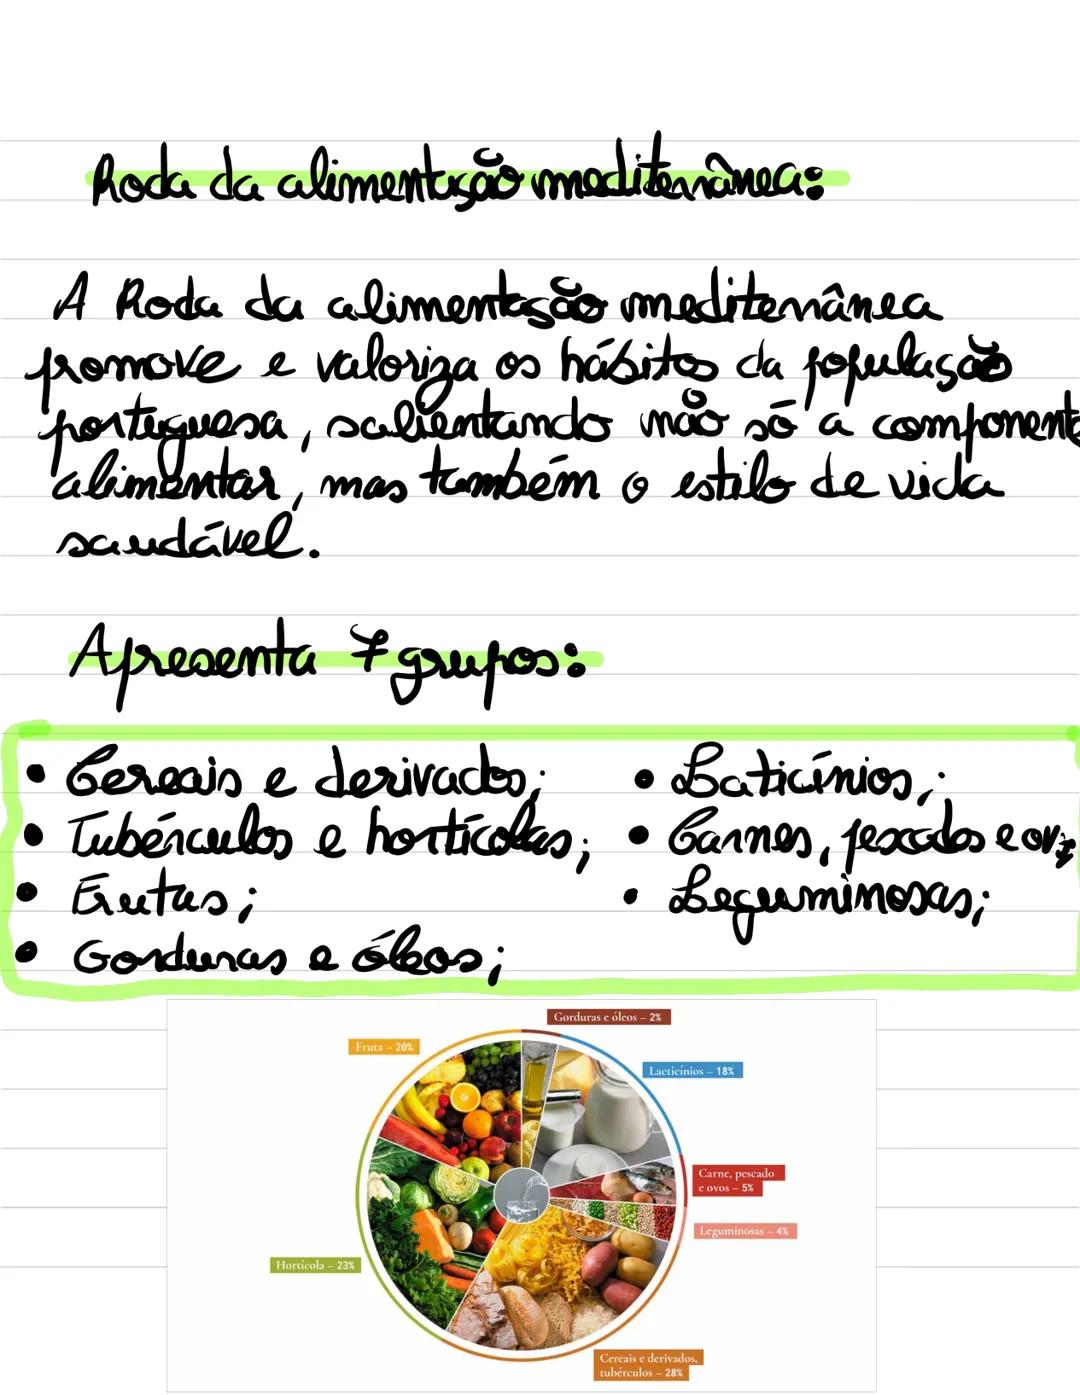 Roda da alimentação mediterrânea:
A Roda da alimentação mediterrânea
promove e valoriza os hábitos da população
portuguesa, salientando não só a component
alimentar, mas também o estilo de vida
saudável.
Apresenta 7 grupos:
• Cereais e derivados;
• Tubérculos e hortícolas;
• Frutas;
• Gorduras e óleos;
• Laticínios;
• Carnes, pescados e ov;
• Leguminosas;
Gorduras e óleos – 2%
Fruta – 20%
Lacticínios – 18%
Carne, pescado
e ovos – 5%
Leguminosas – 4%
Hortícola – 23%
Cereais e derivados,
tubérculos – 28%